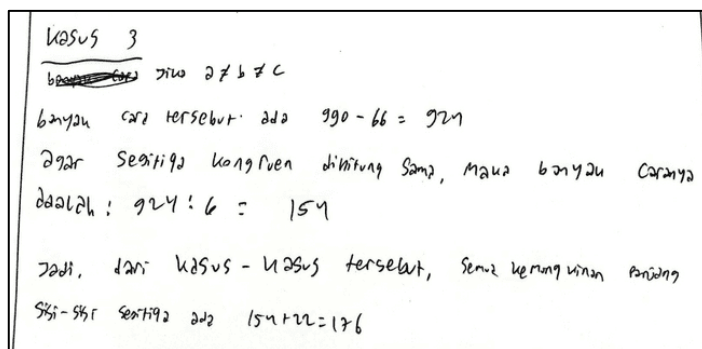 Kasus 3
Jika a ≠ b ≠ c
banyak cara tersebut ada 990 - 66 = 924
agar segitiga kongruen dihitung sama, maka banyak caranya
adalah : 924 : 6 = 154
Jadi, dari kasus - kasus tersebut, semua kemungkinan panjang
sisi-sisi segitiga ada 154+22=176